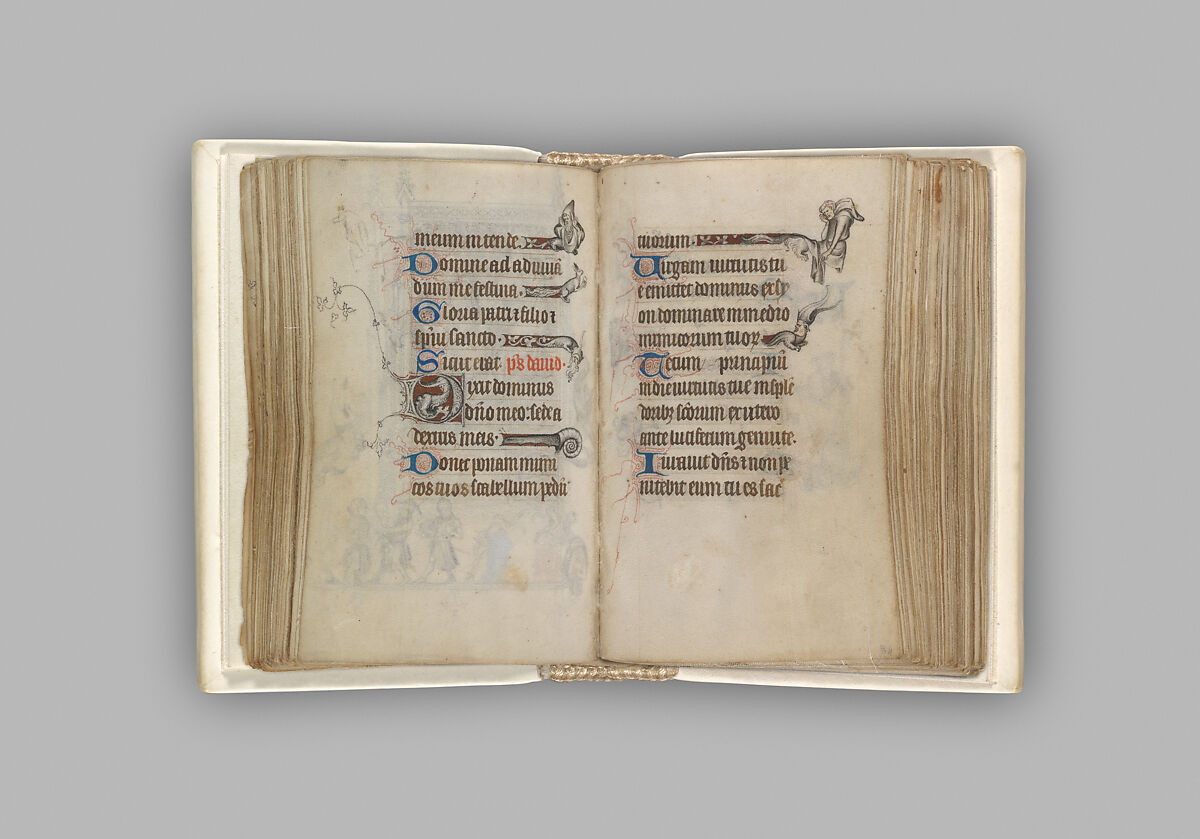 meum intende.
Domine ad adiuuā
dum me festina.
Gloria patri ⁊ filio ⁊
spūi sancto.
Sicut erat. ps̄ dauid.
Dixit dominus
dn̄o meo: sede a
dextris meis.
Donec ponam inimi
cos tuos scabellum pedū
tuorum.
Uirgam uirtutis tu
e emittet dominus ex sy
on dominare in medio
inimicorum tuoꝝ
Tecum principiū
in die uirtutis tue in splē
doribꝫ sc̄orum ex utero
ante luciferum genui te.
Iurauit dn̄s ⁊ non pe
nitebit eum tu es sac